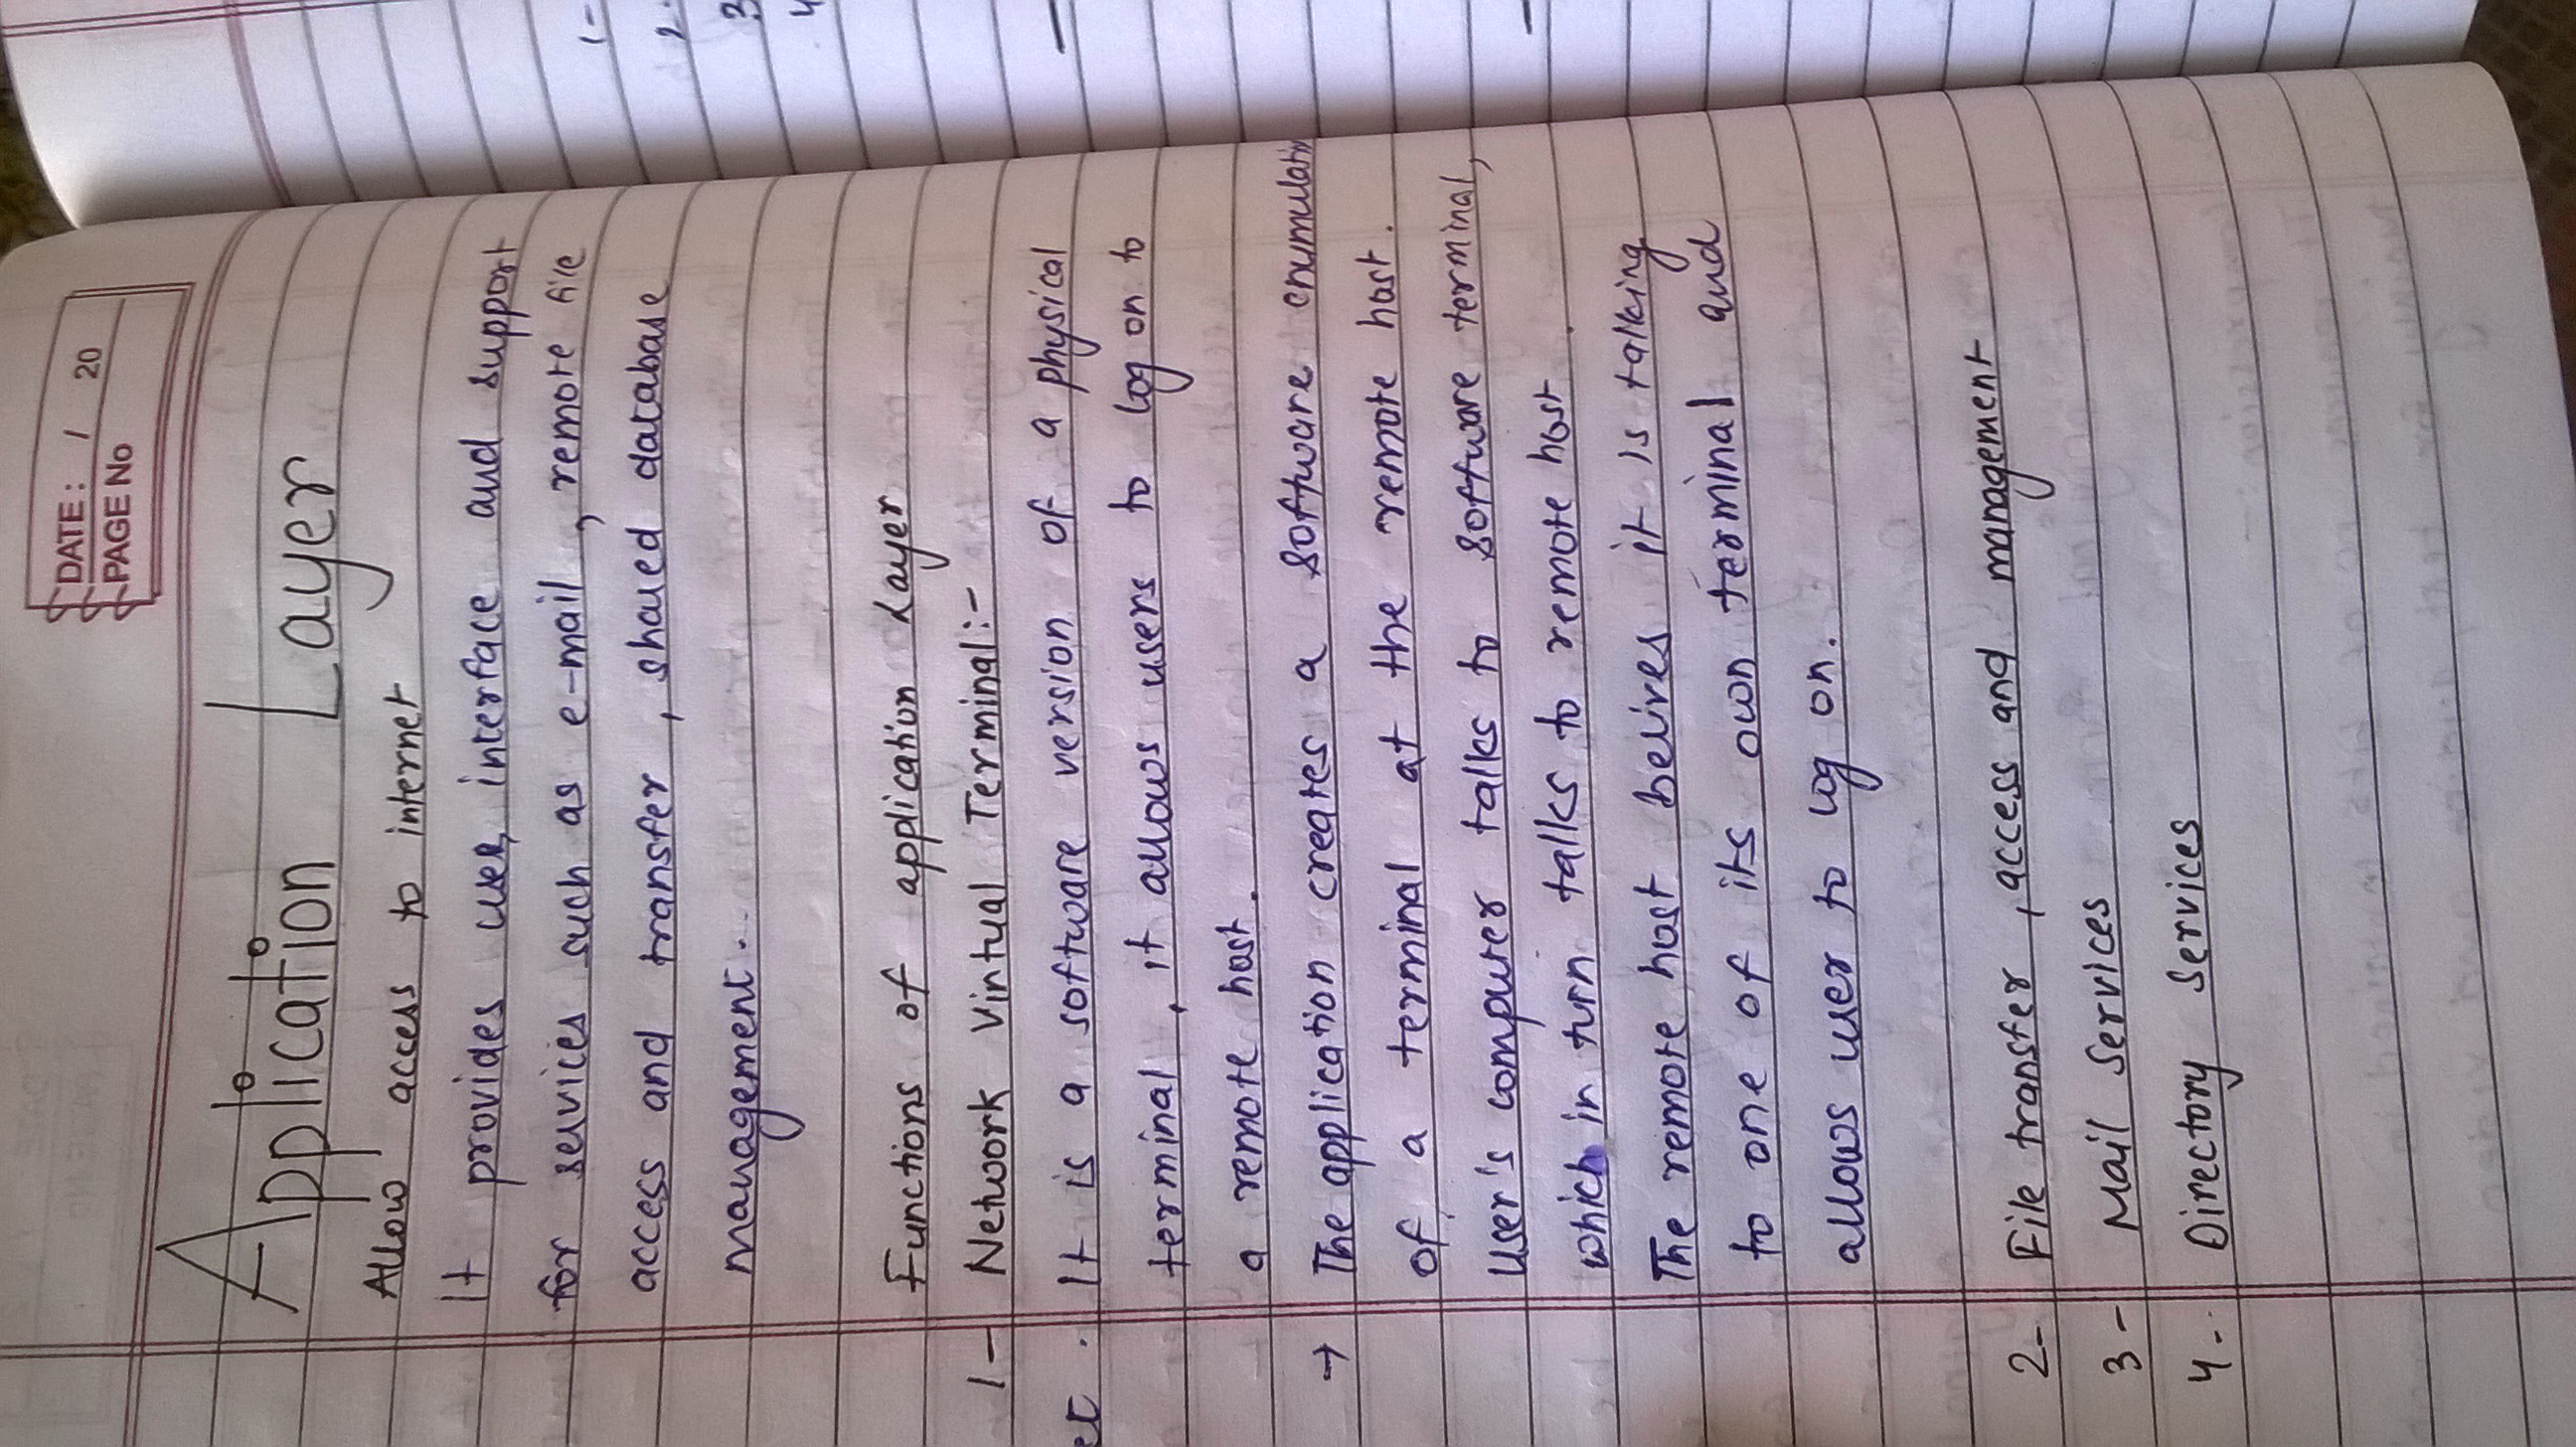 DATE: / 20
PAGE No
Application Layer
Allow access to internet
It provides user interface and support
for services such as e-mail, remote file
access and transfer, shared database
management.
Functions of application Layer
1- Network Virtual Terminal:-
It is a software version of a physical
terminal, it allows users to log on to
a remote host.
→ The application creates a software enumulation
of a terminal at the remote host.
User's computer talks to software terminal,
which in turn talks to remote host.
The remote host belives it is talking
to one of its own terminal and
allows user to log on.
2- File transfer, access and management
3- Mail Services
4- Directory Services
1-
2-
3
4